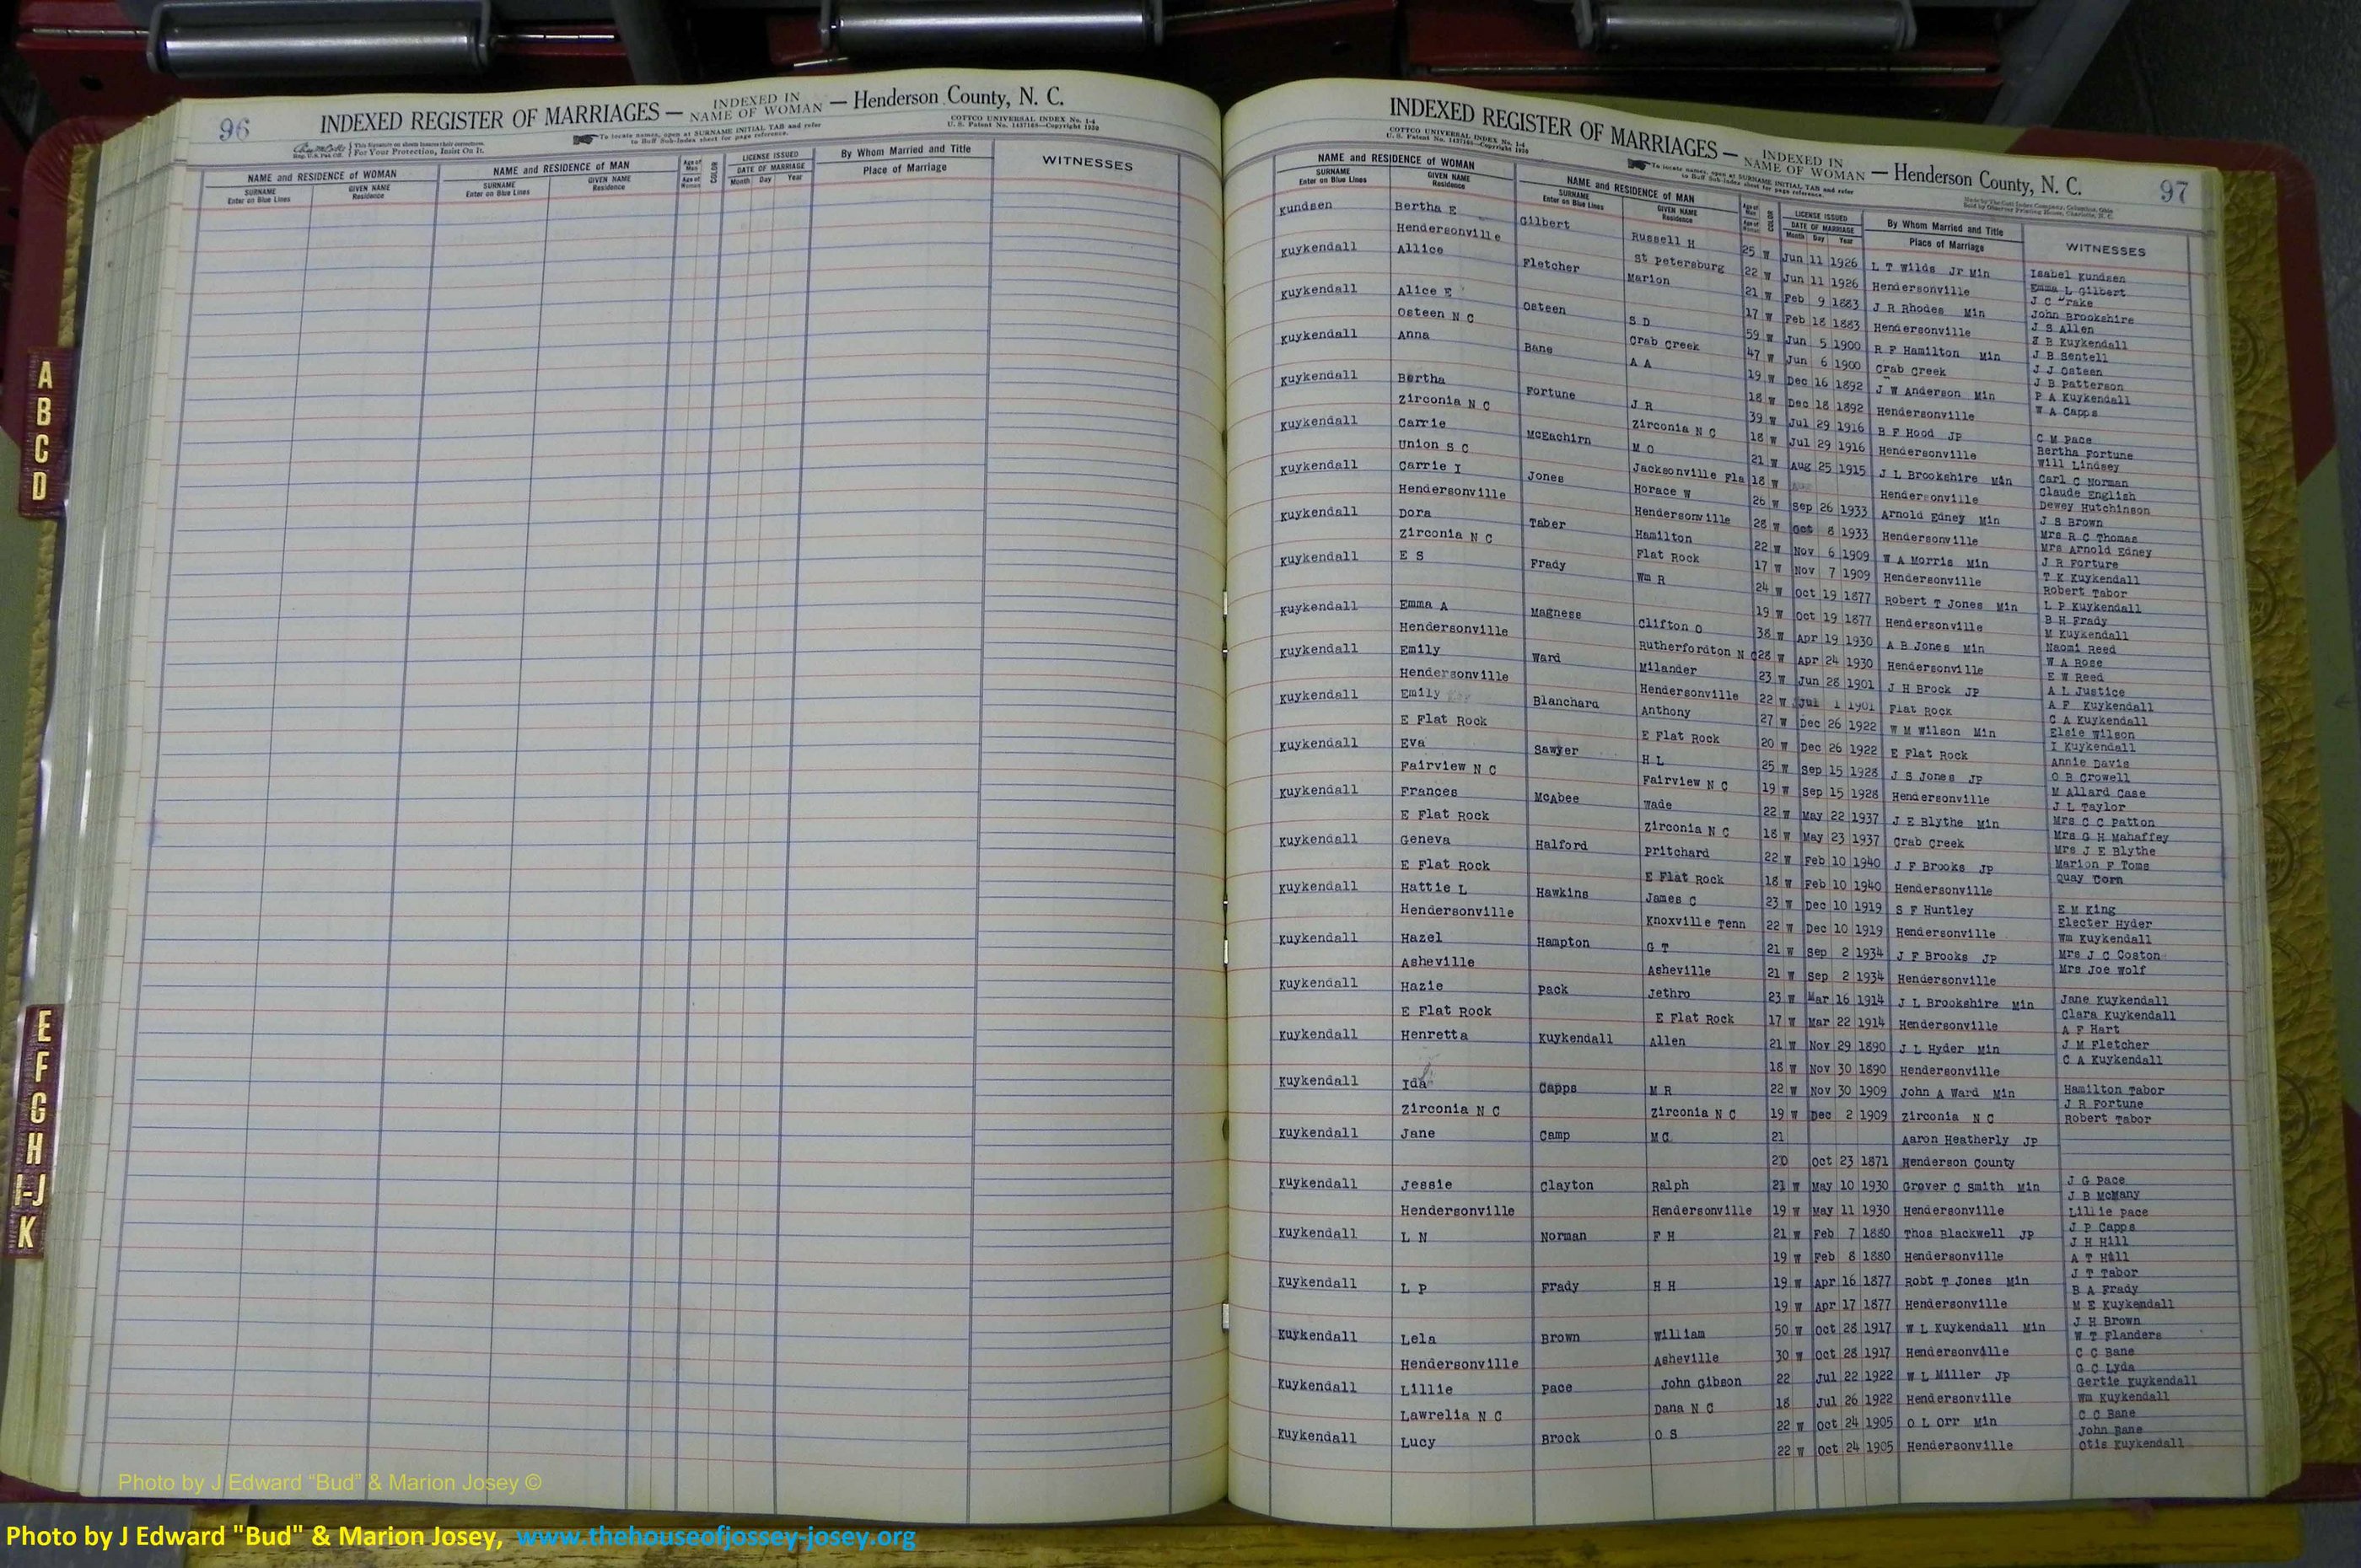 96
INDEXED REGISTER OF MARRIAGES — INDEXED IN NAME OF WOMAN — Henderson County, N. C.
To locate names, open at SURNAME INITIAL TAB and refer to Buff Sub-Index sheet for page reference.
COTTCO UNIVERSAL INDEX No. 1-4
U. S. Patent No. 1437165—Copyright 1930
For Your Protection, Insist On It.
NAME and RESIDENCE OF WOMAN
SURNAME Enter on Blue Lines
GIVEN NAME Residence
NAME and RESIDENCE OF MAN
SURNAME Enter on Blue Lines
GIVEN NAME Residence
Age of Man
Age of Woman
COLOR
LICENSE ISSUED
DATE OF MARRIAGE
Month Day Year
By Whom Married and Title
Place of Marriage
WITNESSES
INDEXED REGISTER OF MARRIAGES — INDEXED IN NAME OF WOMAN — Henderson County, N. C.
97
COTTCO UNIVERSAL INDEX No. 1-4
U. S. Patent No. 1437165—Copyright 1930
To locate names, open at SURNAME INITIAL TAB and refer to Buff Sub-Index sheet for page reference.
NAME and RESIDENCE OF WOMAN
SURNAME Enter on Blue Lines
GIVEN NAME Residence
NAME and RESIDENCE OF MAN
SURNAME Enter on Blue Lines
GIVEN NAME Residence
Age of Man
Age of Woman
COLOR
LICENSE ISSUED
DATE OF MARRIAGE
Month Day Year
By Whom Married and Title
Place of Marriage
WITNESSES
Kundsen Bertha E Gilbert Russell H 25 W Jun 11 1926 L T Wilds Jr Min Isabel Kundsen
Hendersonville St Petersburg 22 W Jun 11 1926 Hendersonville Emma L Gilbert
J C Drake
Kuykendall Allice Fletcher Marion 21 W Feb 9 1883 J R Rhodes Min John Brookshire
17 W Feb 18 1883 Hendersonville J S Allen
Z B Kuykendall
Kuykendall Alice E Osteen S D 59 W Jun 5 1900 R F Hamilton Min J B Sentell
Osteen N C Crab Creek 47 W Jun 6 1900 Crab Creek J J Osteen
J B Patterson
Kuykendall Anna Bane A A 19 W Dec 16 1892 J W Anderson Min P A Kuykendall
18 W Dec 18 1892 Hendersonville W A Capps
Kuykendall Bertha Fortune J R 39 W Jul 29 1916 B F Hood JP C M Pace
Zirconia N C Zirconia N C 18 W Jul 29 1916 Hendersonville Bertha Fortune
Will Lindsey
Kuykendall Carrie McEachirn M O 21 W Aug 25 1915 J L Brookshire Min Carl C Norman
Union S C Jacksonville Fla 18 W Hendersonville Claude English
Dewey Hutchinson
Kuykendall Carrie I Jones Horace W 26 W Sep 26 1933 Arnold Edney Min J S Brown
Hendersonville Hendersonville 28 W Oct 8 1933 Hendersonville Mrs R C Thomas
Mrs Arnold Edney
Kuykendall Dora Taber Hamilton 22 W Nov 6 1909 W A Morris Min J R Forture
Zirconia N C Flat Rock 17 W Nov 7 1909 Hendersonville T K Kuykendall
Robert Tabor
Kuykendall E S Frady Wm R 24 W Oct 19 1877 Robert T Jones Min L P Kuykendall
19 W Oct 19 1877 Hendersonville B H Frady
M Kuykendall
Kuykendall Emma A Magness Clifton O 38 W Apr 19 1930 A B Jones Min Naomi Reed
Hendersonville Rutherfordton N C 28 W Apr 24 1930 Hendersonville W A Rose
E W Reed
Kuykendall Emily Ward Milander 23 W Jun 28 1901 J H Brock JP A L Justice
Hendersonville Hendersonville 22 W Jul 1 1901 Flat Rock A F Kuykendall
C A Kuykendall
Kuykendall Emily Blanchard Anthony 27 W Dec 26 1922 W M Wilson Min Elsie Wilson
E Flat Rock E Flat Rock 20 W Dec 26 1922 E Flat Rock I Kuykendall
Annie Davis
Kuykendall Eva Sawyer H L 25 W Sep 15 1928 J S Jones JP O B Crowell
Fairview N C Fairview N C 19 W Sep 15 1928 Hendersonville M Allard Case
J L Taylor
Kuykendall Frances McAbee Wade 22 W May 22 1937 J E Blythe Min Mrs C C Patton
E Flat Rock Zirconia N C 18 W May 23 1937 Crab Creek Mrs G H Mahaffey
Mrs J E Blythe
Kuykendall Geneva Halford Pritchard 22 W Feb 10 1940 J F Brooks JP Marion F Toms
E Flat Rock E Flat Rock 18 W Feb 10 1940 Hendersonville Quay Corn
Kuykendall Hattie L Hawkins James C 23 W Dec 10 1919 S F Huntley E M King
Hendersonville Knoxville Tenn 22 W Dec 10 1919 Hendersonville Electer Hyder
Wm Kuykendall
Kuykendall Hazel Hampton G T 21 W Sep 2 1934 J F Brooks JP Mrs J C Coston
Asheville Asheville 21 W Sep 2 1934 Hendersonville Mrs Joe Wolf
Kuykendall Hazie Pack Jethro 23 W Mar 16 1914 J L Brookshire Min Jane Kuykendall
E Flat Rock E Flat Rock 17 W Mar 22 1914 Hendersonville Clara Kuykendall
A F Hart
Kuykendall Henretta Kuykendall Allen 21 W Nov 29 1890 J L Hyder Min J M Fletcher
18 W Nov 30 1890 Hendersonville C A Kuykendall
Kuykendall Ida Capps M R 22 W Nov 30 1909 John A Ward Min Hamilton Tabor
Zirconia N C Zirconia N C 19 W Dec 2 1909 Zirconia N C J R Fortune
Robert Tabor
Kuykendall Jane Camp M C 21 Aaron Heatherly JP
20 Oct 23 1871 Henderson County
Kuykendall Jessie Clayton Ralph 21 W May 10 1930 Grover C Smith Min J G Pace
J B McMany
Hendersonville Hendersonville 19 W May 11 1930 Hendersonville Lillie Pace
Kuykendall L N Norman F H 21 W Feb 7 1880 Thos Blackwell JP J P Capps
J H Hill
19 W Feb 8 1880 Hendersonville A T Hill
Kuykendall L P Frady H H 19 W Apr 16 1877 Robt T Jones Min J T Tabor
B A Frady
19 W Apr 17 1877 Hendersonville M E Kuykendall
Kuykendall Lela Brown William 50 W Oct 28 1917 W L Kuykendall Min J H Brown
W T Flanders
Hendersonville Asheville 30 W Oct 28 1917 Hendersonville C C Bane
Kuykendall Lillie Pace John Gibson 22 Jul 22 1922 W L Miller JP G C Lyda
Gertie Kuykendall
Lawrelia N C Dana N C 18 Jul 26 1922 Hendersonville Wm Kuykendall
Kuykendall Lucy Brock O S 22 W Oct 24 1905 O L Orr Min C C Bane
John Bane
22 W Oct 24 1905 Hendersonville Otis Kuykendall
A
B
C
D
E
F
G
H
I-J
K
Photo by J Edward “Bud” & Marion Josey ©
Photo by J Edward "Bud" & Marion Josey, www.thehouseofjossey-josey.org